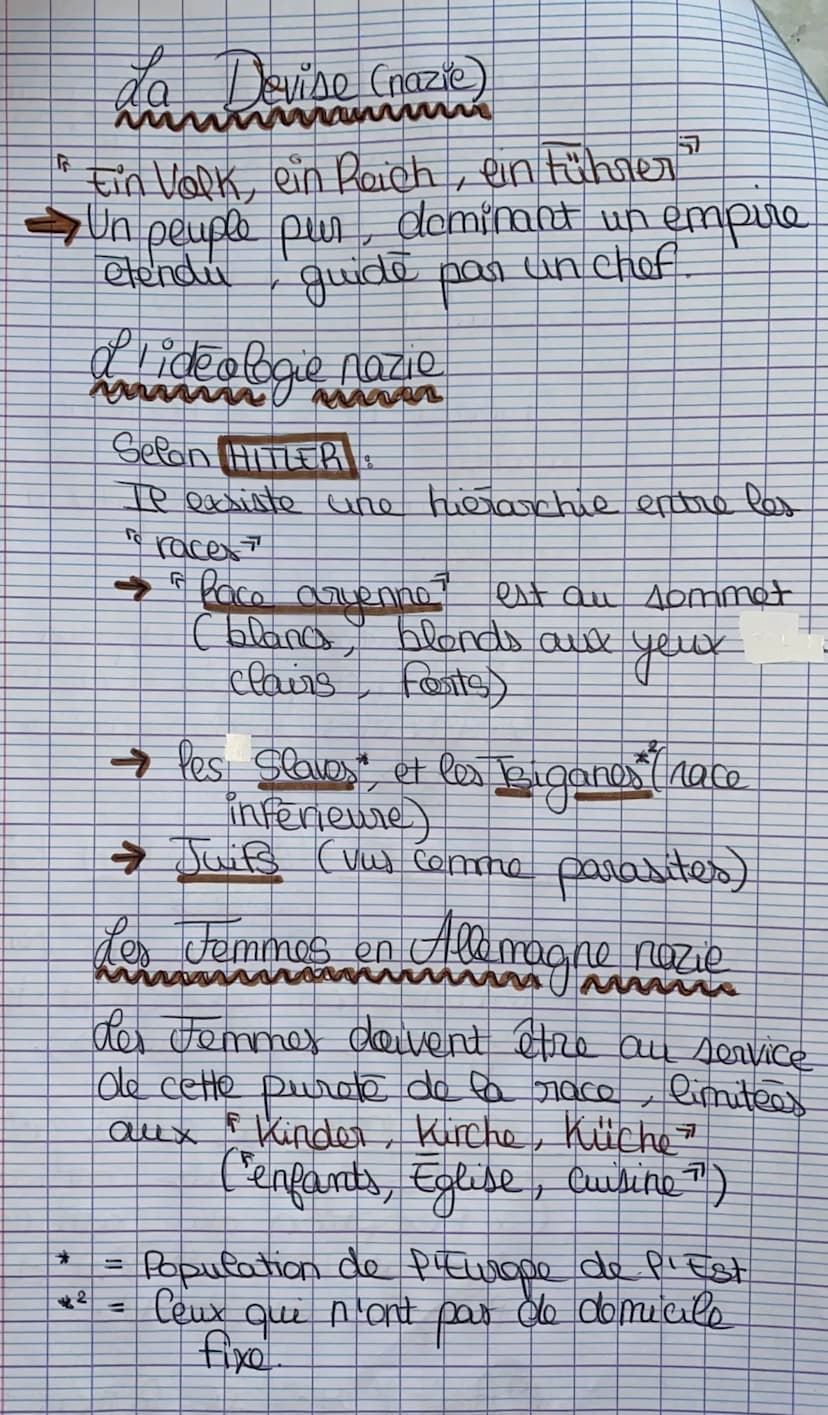 La Devise (nazie)
"Ein Volk, ein Reich, ein Führer"
→ Un peuple pur, dominant un empire
étendu, guidé par un chef.
L'idéologie nazie
Selon HITLER :
Il existe une hiérarchie entre les
"races"
→ "Race aryenne" est au sommet
(blancs, blonds aux yeux
clairs, forts)
→ les Slaves*, et les Tsiganes*² (race
inférieure)
→ Juifs (vus comme parasites)
Les Femmes en Allemagne nazie
Les Femmes doivent être au service
de cette pureté de la race, limitées
aux "Kinder, Kirche, Küche"
("enfants, Église, cuisine")
* = Population de l'Europe de l'Est
*² = Ceux qui n'ont pas de domicile
fixe.